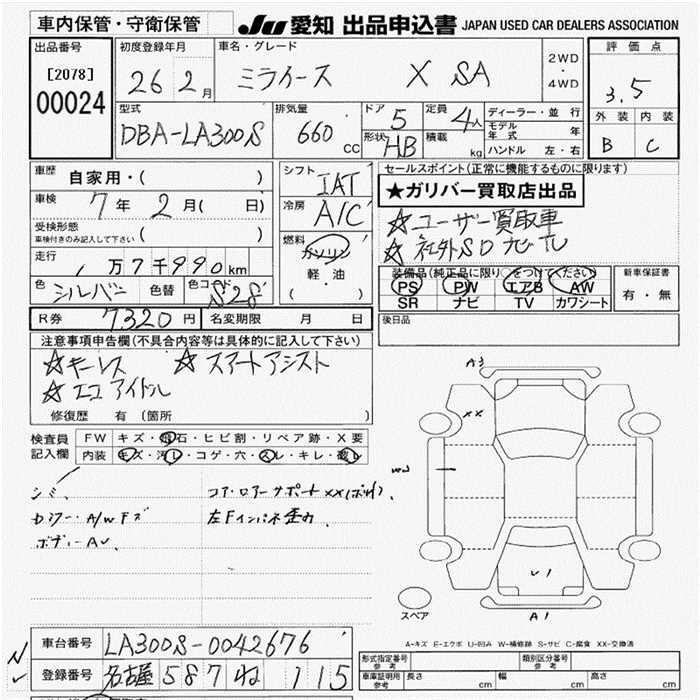 車内保管・守衛保管
JU 愛知 出品申込書 JAPAN USED CAR DEALERS ASSOCIATION
出品番号 初度登録年月 車名・グレード 評価点
[2078]
00024
26 2月 ミライース X SA
2WD
・
4WD
3.5
型式 排気量 ドア 5 定員 4人 ディーラー・並 行
外装 内装
DBA-LA300S 660 CC 形状 HB 積載 kg
モデル年式 年
ハンドル 左・右
B C
車歴 自家用・( )
シフト IAT
セールスポイント(正常に機能するものに限ります)
★ガリバー買取店出品
車検 7年 2月( 日)
冷房 A/C
☆ユーザー買取車
受検形態
車検付きのみ記入して下さい ( )
☆社外SDナビTV
走行 1万7千990km
燃料 ガソリン
軽・油
( ・ )
装備品(純正品に限り、○をつけてください) 新車保証書
色 シルバー 色替 色コード S28
PS PW エアB AW
有・無
SR ナビ TV カワシート
R券 7320円 名変期限 月 日
後日品
注意事項申告欄(不具合内容等は具体的に記入して下さい)
☆キーレス ☆スマートアシスト
☆エコアイドル
修復歴 有(箇所 )
検査員
記入欄
FW キズ・飛石・ヒビ割・リペア跡・X要
内装 キズ・汚レ・コゲ・穴・スレ・キレ・劣化
シミ コア・ロアーサポートXX(ボルト).
カワリー・A/Wキズ 左Fインパネ歪み
ボディーAU、
A3
XX
U1
A1
スペア
A=キズ E=エクボ U=凹み W=補修跡 S=サビ C=腐食 XX=交換済
車台番号 LA300S-0042676
登録番号 名古屋 587 ね 115
形式指定番号
参考
類別区分番号
参考
車庫証明用
参考
長さ cm 幅 cm 高さ cm